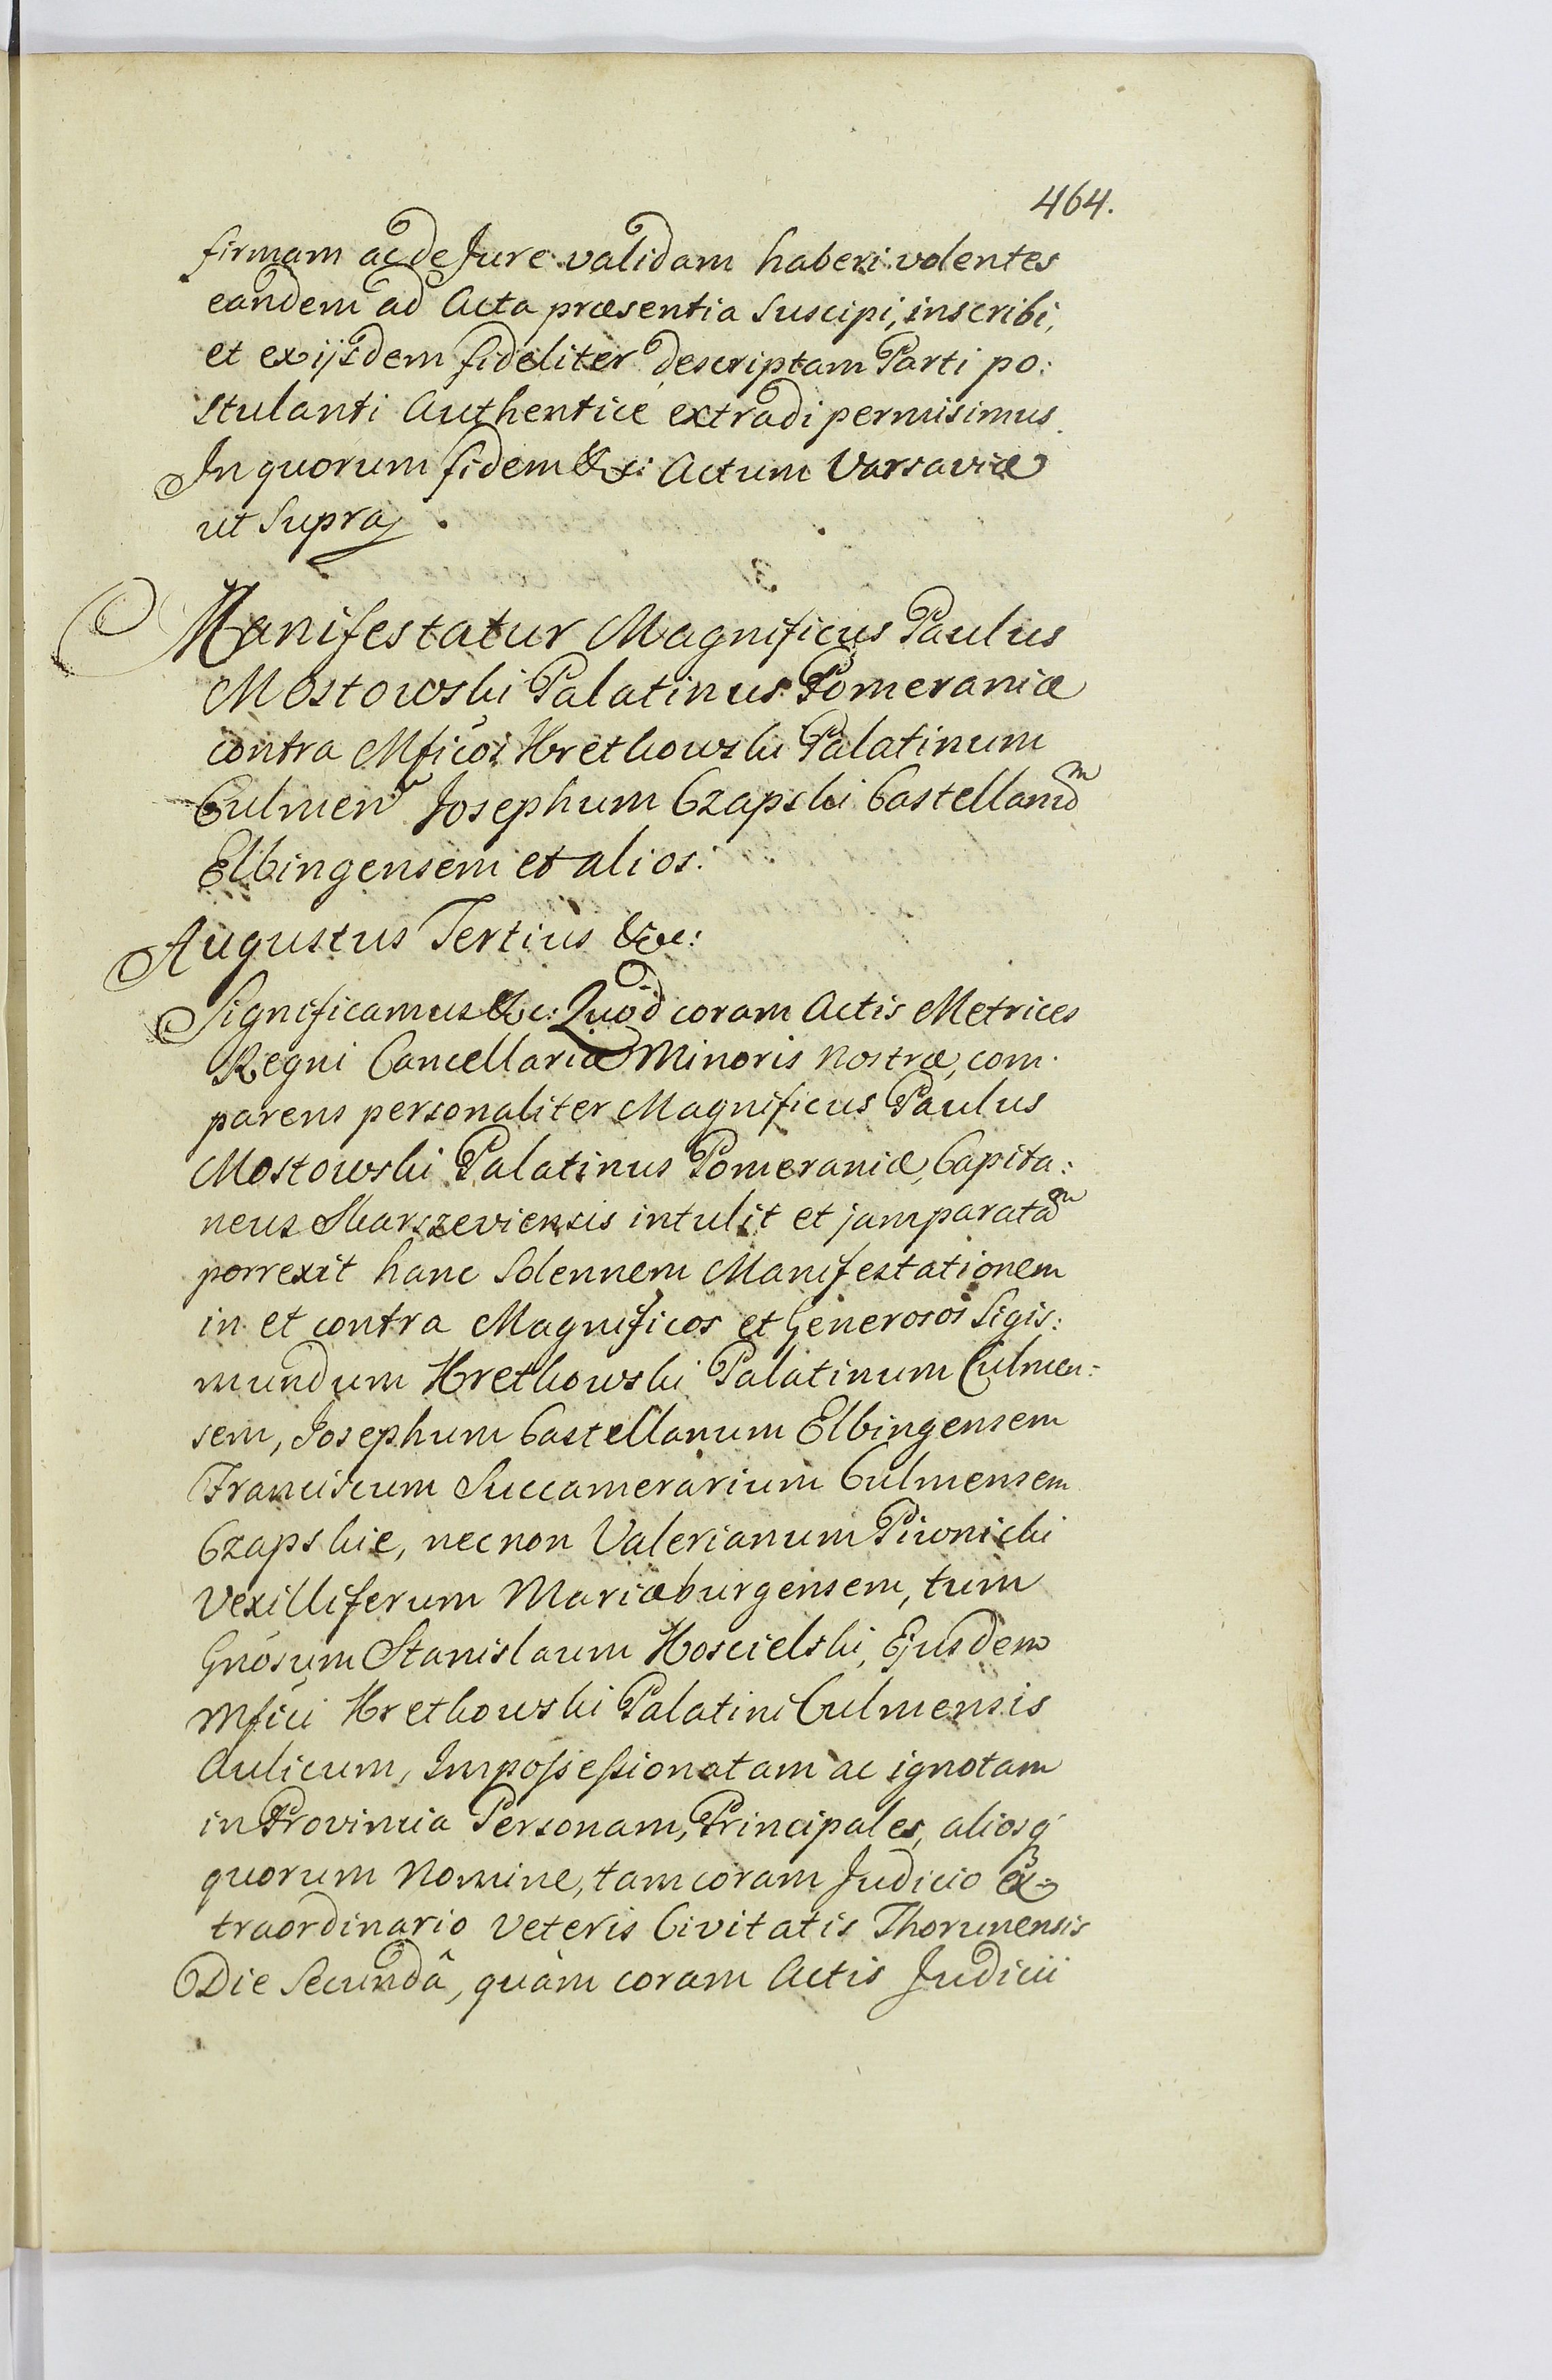 464.
firmam ac de Jure validam haberi volentes
eandem ad Acta præsentia suscipi, inscribi,
et ex ijsdem fideliter descriptam Parti po:
stulanti Authentice extradi permisimus.
In quorum fidem &c: Actum Varsaviæ
ut supra.
Manifestatur Magnificus Paulus
Mostowski Palatinus Pomeraniæ
contra Mficos Kretkowski Palatinum
Culmen Josephum Czapski Castellanum
Elbingensem et alios.
Augustus Tertius &c:
Significamus &c: Quod coram Actis Metrices
Regni Cancellariæ Minoris Nostræ, com.
parens personaliter Magnificus Paulus
Mostowski Palatinus Pomeraniæ, Capita:
neus Skarszeviensis intulit et jam paratam
porrexit hanc Solennem Manifestationem
in et contra Magnificos et Generosos Sigis:
mundum Kretkowski Palatinum Culmen:
sem, Josephum Castellanum Elbingensem
Franciscum Succamerarium Culmensem
Czapskie, necnon Valerianum Piwnicki
Vexilliferum Mariæburgensem, tum
Gnosum Stanislaum Koscielski, Ejusdem
Mfici Kretkowski Palatini Culmensis
Aulicum, Impossessionatam ac ignotam
in Provincia Personam, Principales, aliosq
quorum Nomine, tam coram Judicio ex:
traordinario Veteris Civitatis Thorunensis
Die Secundâ, quàm coram Actis Judicii